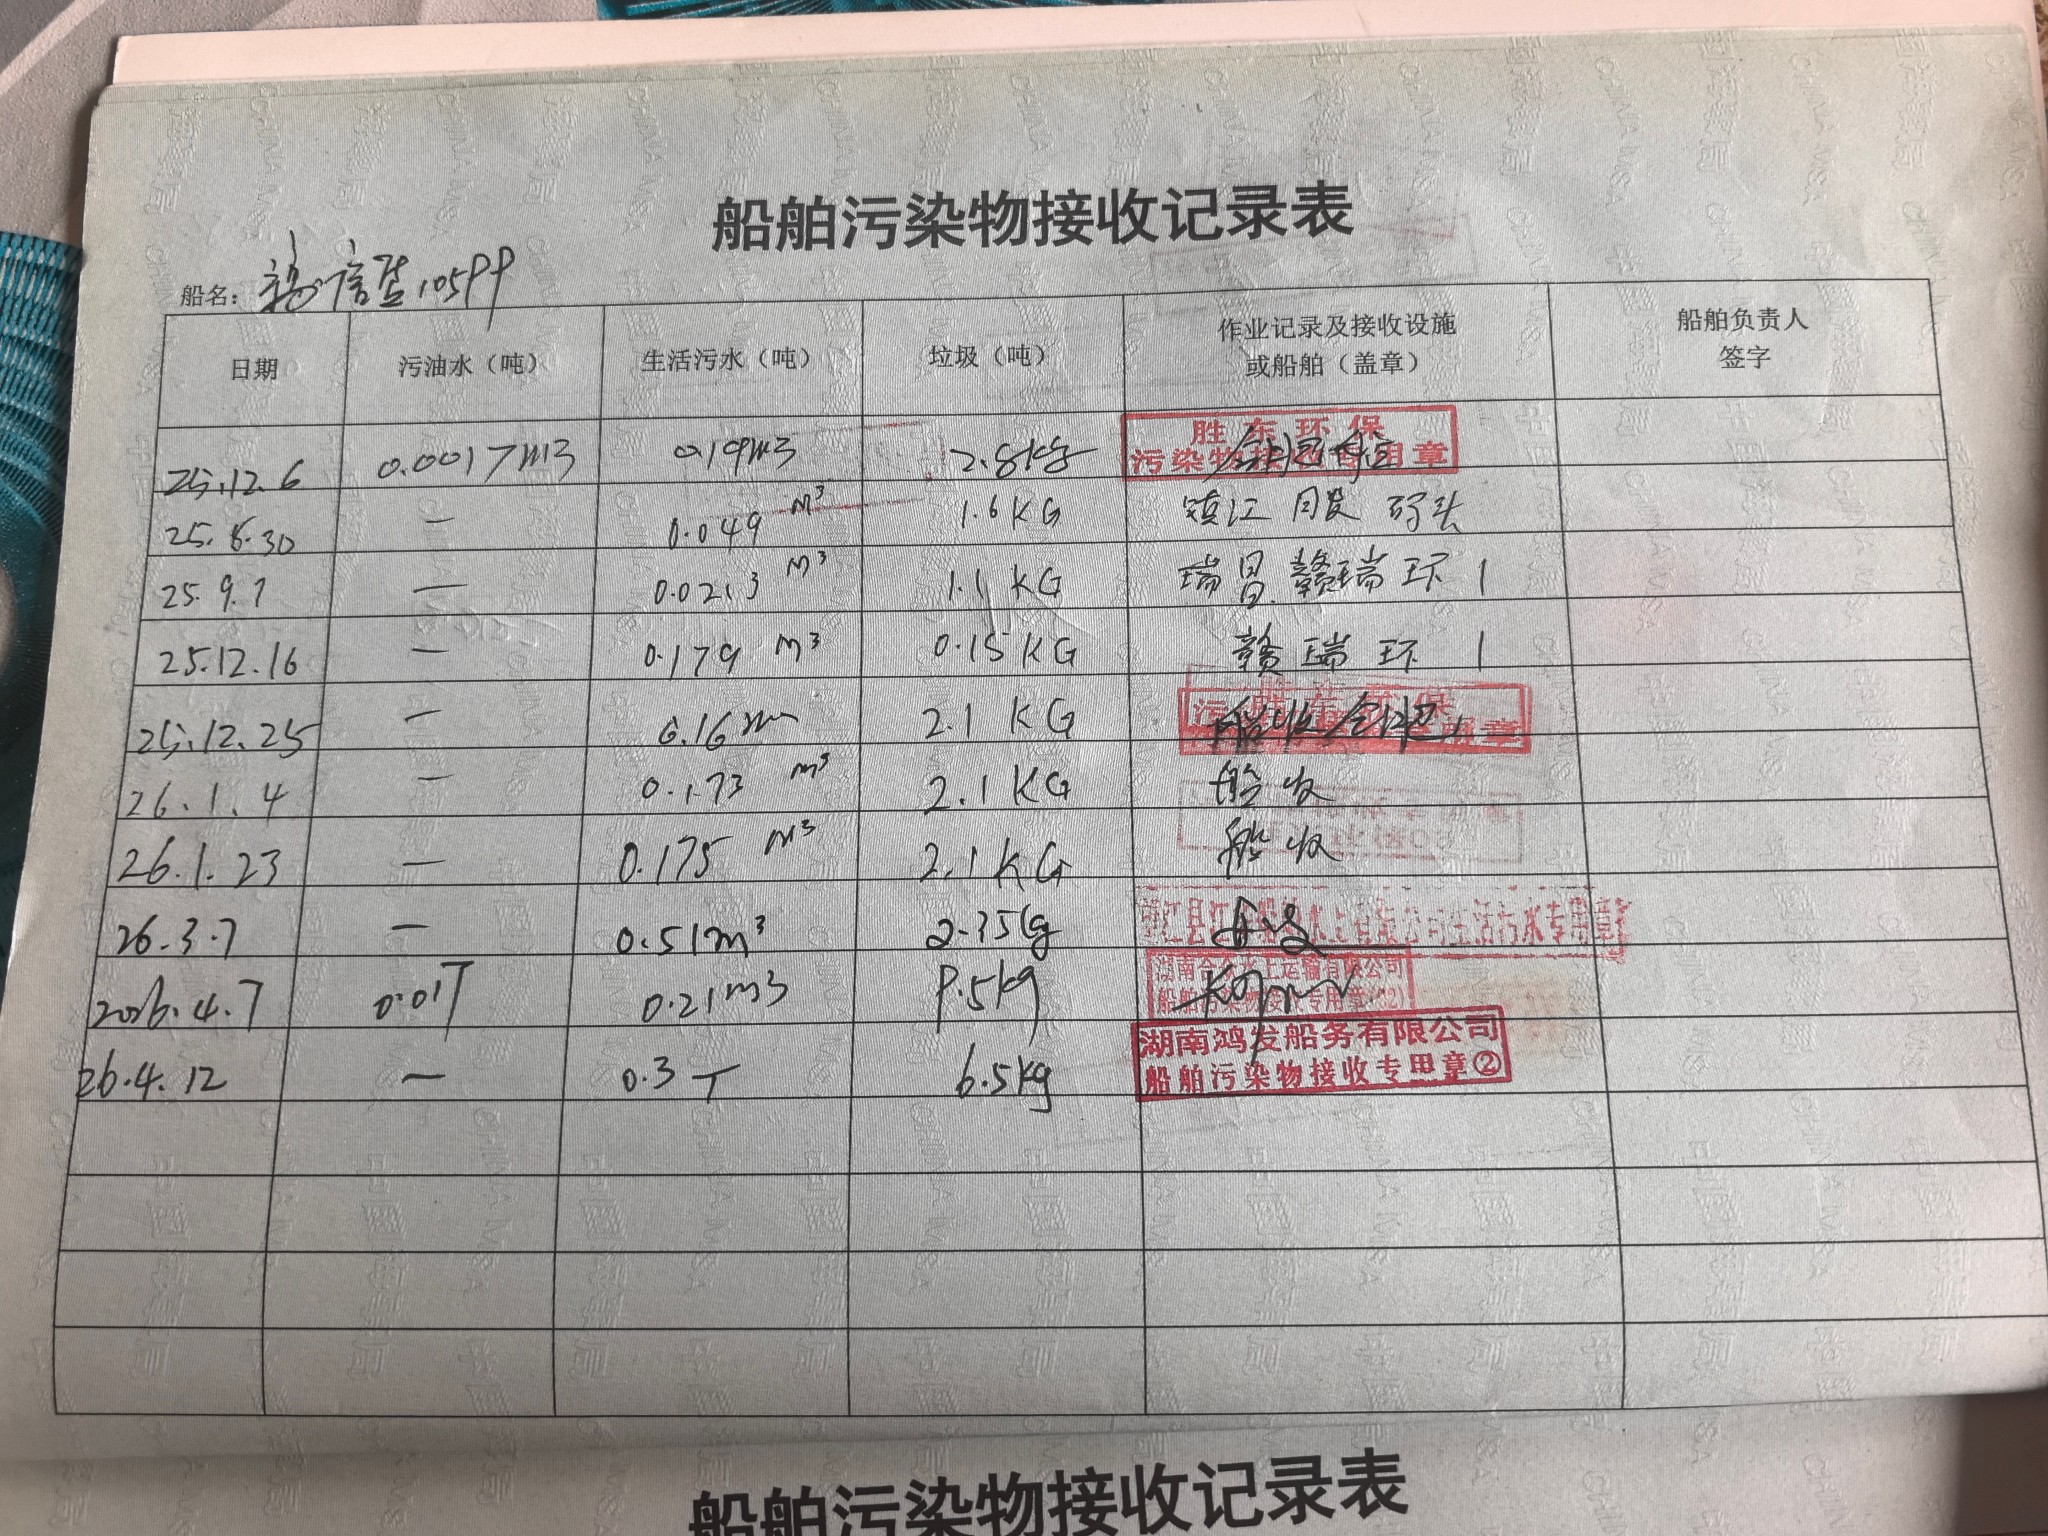 船舶污染物接收记录表
船名: 105
日期 污油水（吨） 生活污水（吨） 垃圾（吨） 作业记录及接收设施或船舶（盖章） 船舶负责人签字
25.12.6 0.0017m3 0.19m3 2.8kg 胜东环保 污染物接收专用章
25.6.30 — 0.049 m³ 1.6KG 镇江 码头
25.9.7 — 0.0213 m³ 1.1KG 瑞昌.赣瑞环1
25.12.16 — 0.179 m³ 0.15KG 赣瑞环1
25.12.25 — 0.16m 2.1 KG 胜东环保 船收
26.1.4 — 0.173 m³ 2.1KG 船收
26.1.23 — 0.175 m³ 2.1KG 船收
26.3.7 — 0.51m³ 2.35 生活污水专用章
2026.4.7 0.01T 0.21m3 .5kg 水上运输有限公司 船舶污染物接收专用章
26.4.12 — 0.3T 6.5kg 湖南鸿发船务有限公司 船舶污染物接收专用章②
船舶污染物接收记录表